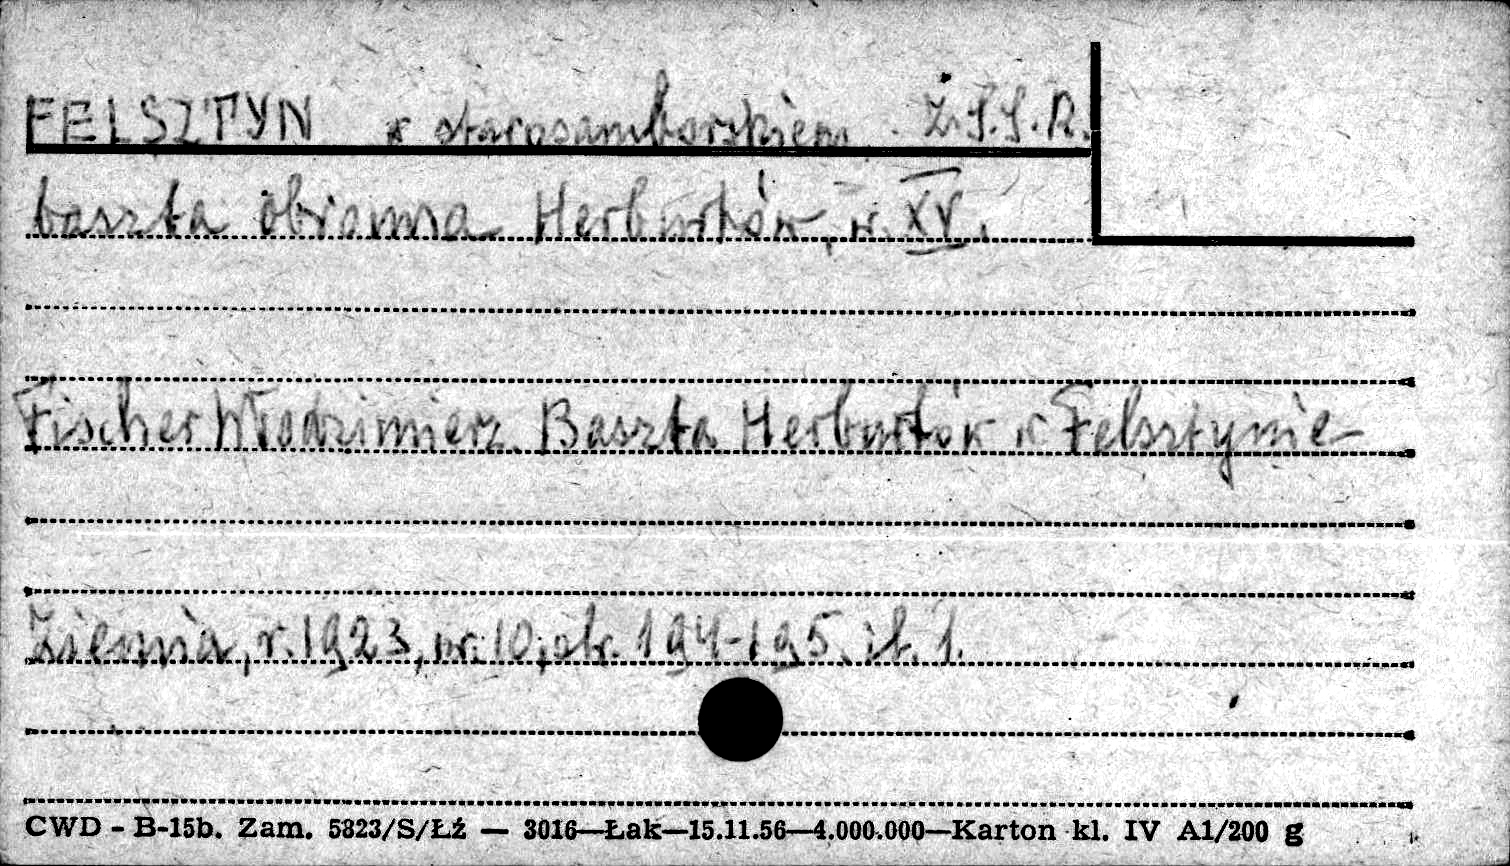 FELSZTYN w starosamborskiem. Z.S.S.R.
baszta obronna Herburtów, w. XV.
Fischer Włodzimierz. Baszta Herburtów w Felsztynie
Ziemia, r. 1923, nr. 10, str. 194-195. il. 1.
CWD - B-15b. Zam. 5823/S/Łź — 3016—Łak—15.11.56—4.000.000—Karton kl. IV A1/200 g